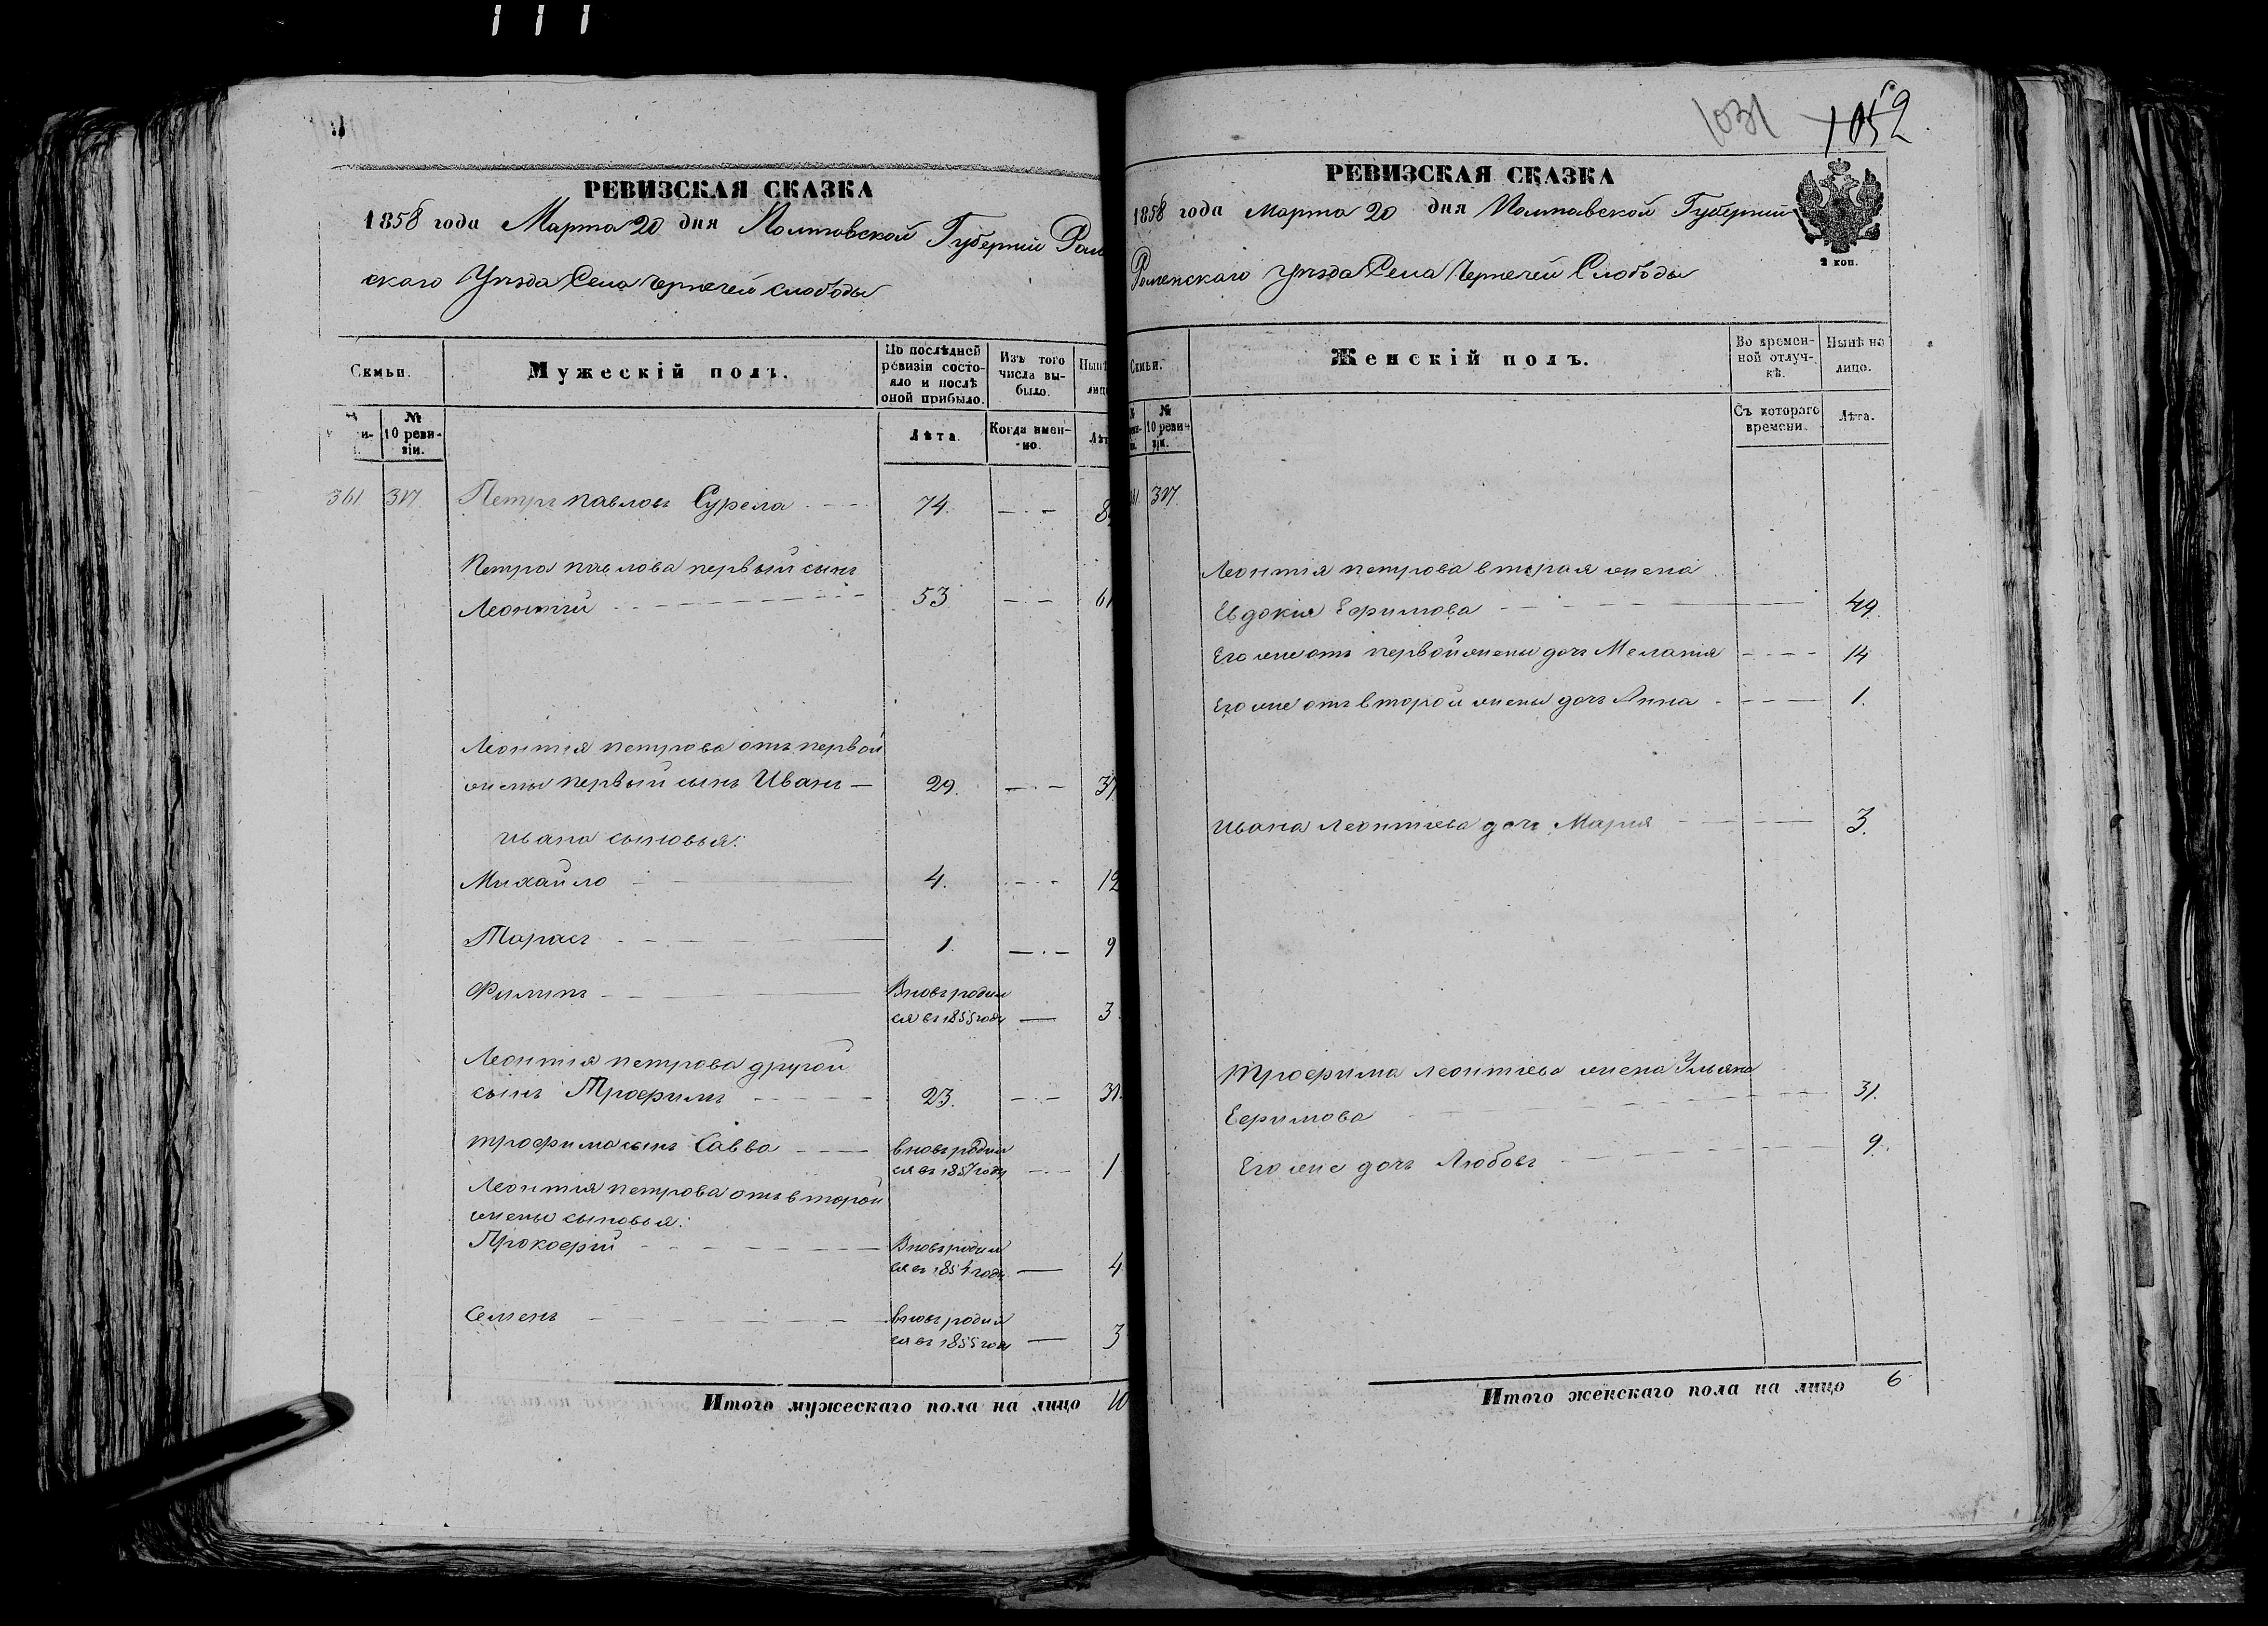 РЕВИЗСКАЯ СКАЗКА
1858 года Марта 20 дня Полтавской Губернии Ром
скаго Уезда Села Чернечей слободы
Семьи.
Мужескій полъ.
По послѣдней ревизіи состояло и послѣ оной прибыло.
Изъ того числа выбыло.
Нынѣ
лицо
№ 10 ревизіи.
Лѣта.
Когда именно.
Лѣт
361 317 Петръ павловъ Сурела 74. 8
Петра павлова первый сынъ
Леонтий 53. 61
Леонтия петрова отъ первой
жены первый сынъ Иванъ 29. 37
ивана сыновья:
Михайло 4. 12
Тарасъ 1. 9
Филипъ Вновь родил
ся въ 1855 году 3
Леонтия петрова другой
сынъ Трофимъ 23. 31.
трофима сынъ Савва вновь родил
ся въ 1857 году 1
Леонтия петрова отъ второй
жены сыновья:
Прокофий Вновь родил
ся въ 1854 году 4
Семенъ вновь родил
ся въ 1855 году 3
Итого мужескаго пола на лицо 10
1031 1052
РЕВИЗСКАЯ СКАЗКА
1858 года Марта 20 дня Полтавской Губернии
2 коп.
Роменскаго уезда Села Чернечей Слободы
Семьи.
Женскій полъ.
Во временной отлучкѣ.
Нынѣ на лицо.
№ 10 ревизіи.
Съ котораго времени.
Лѣта.
61 317.
Леонтия петрова вторая жена
Евдокия Ефимова 49.
Его же отъ первой жены дочь Мелания 14
Его же отъ второй жены дочь Анна 1.
Ивана Леонтиева дочь Мария 3.
Трофима Леонтиева жена Ульяна
Ефимова 31.
Его же дочь Любовь 9.
Итого женскаго пола на лицо 6